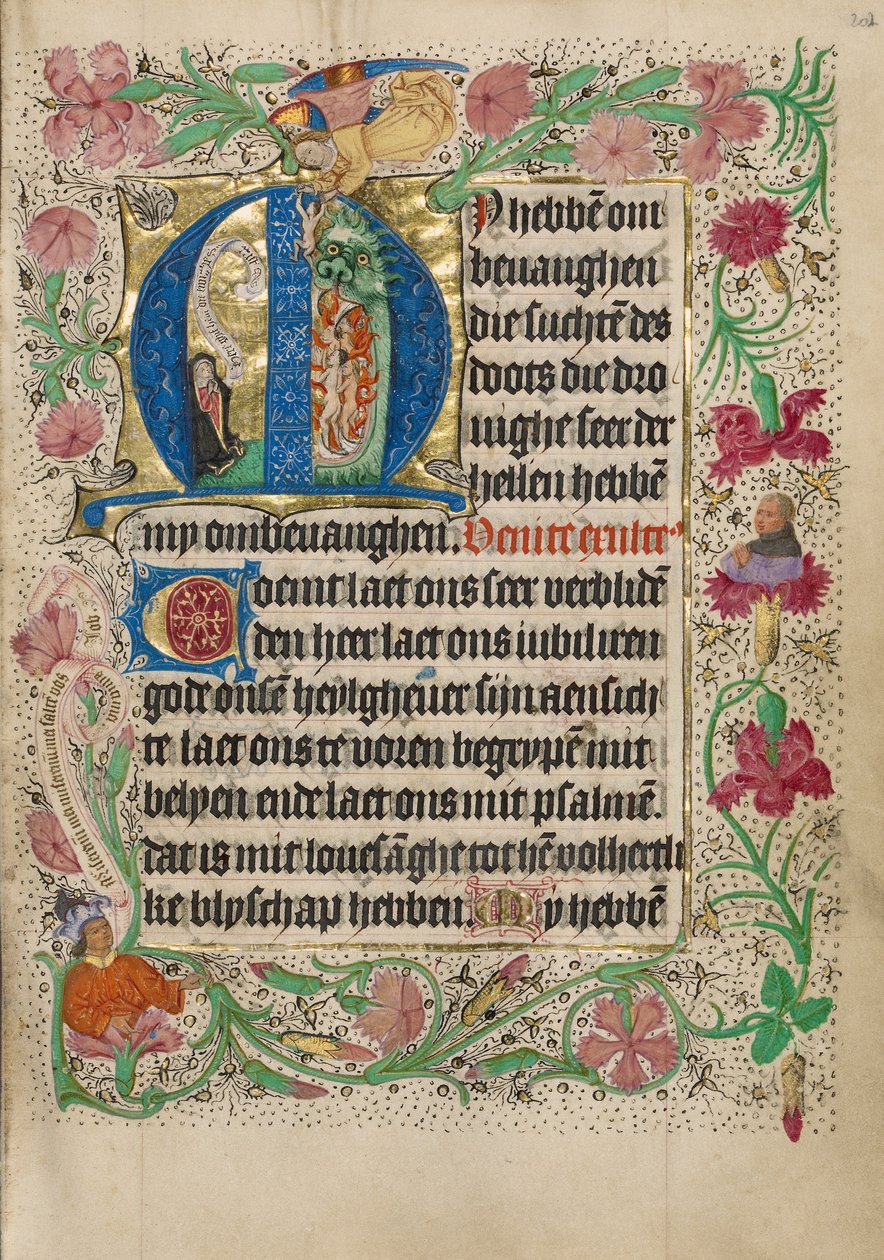 202
y hebbē om
beuanghen
die suchtē des
doots die dro
uighe seer der
hellen hebbē
my ombeuanghen. Venite exulte
Coemt laet ons seer verblidē
den heer laet ons iubiliren
gode onsē heylgheuer sijn aensich
te laet ons te voren begrypē mit
belyen ende laet ons mit psalmē.
dat is mit louesāghe tot hē volherti
ke blyschap hebben. My hebbē
Job